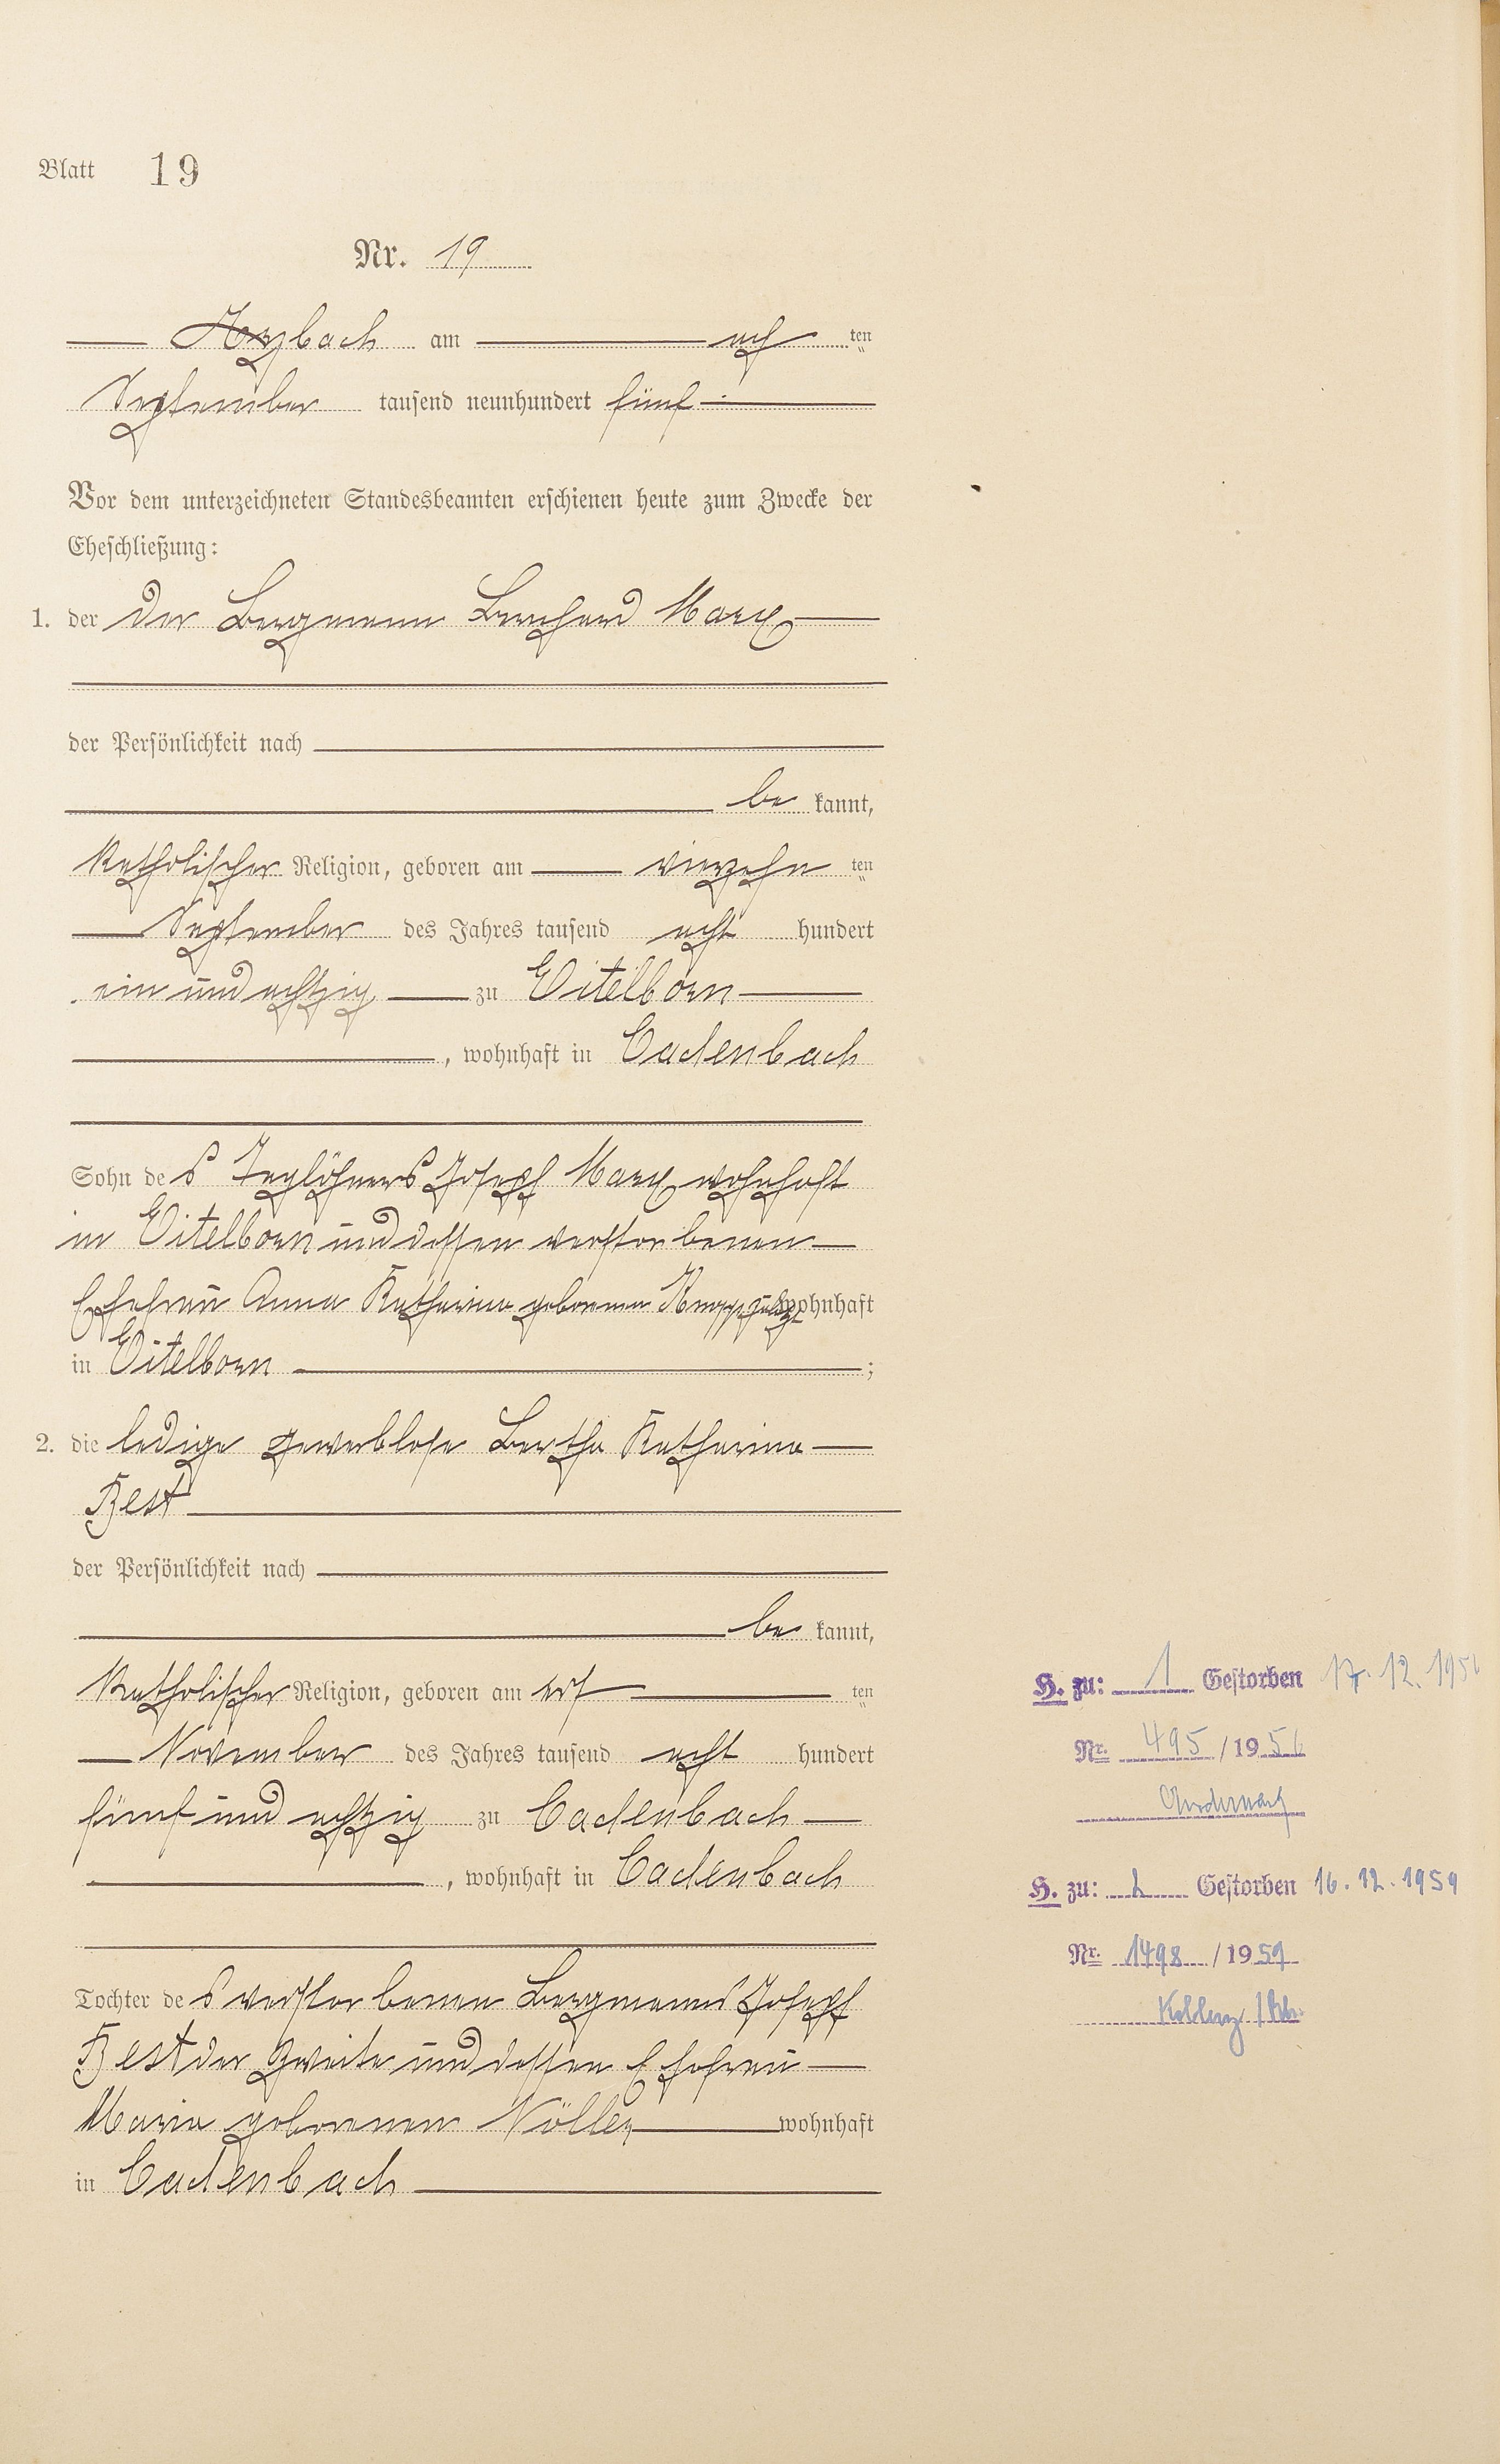 Blatt 19
Nr. 19
Arzbach am ach ten
September tausend neunhundert fünf
Vor dem unterzeichneten Standesbeamten erschienen heute zum Zwecke der
Eheschließung:
1. der der Bergmann Bernhard Marx
der Persönlichkeit nach
be kannt,
katholischer Religion, geboren am vierzehn ten
September des Jahres tausend acht hundert
ein und achtzig zu Eitelborn
, wohnhaft in Cadenbach
Sohn de s Taglöhners Josef Marx wohnhaft
in Eitelborn und dessen verstorbenen
Ehefrau Anna Katharina geborenen Knopp zuletzt wohnhaft
in Eitelborn ;
2. die ledige gewerblose Bertha Katharina
Best
der Persönlichkeit nach
be kannt,
katholischer Religion, geboren am ten
November des Jahres tausend acht hundert
fünf und achtzig zu Cadenbach
, wohnhaft in Cadenbach
Tochter de s verstorbenen Bergmanns Josef
Best der Zweite und dessen Ehefrau
Maria geborenen Nöller wohnhaft
in Cadenbach
H. zu: 1 Gestorben 17. 12. 1956
Nr. 495 / 1956
Andernach
H. zu: 2 Gestorben 16. 12. 1959
Nr. 1498 / 1959
Koblenz